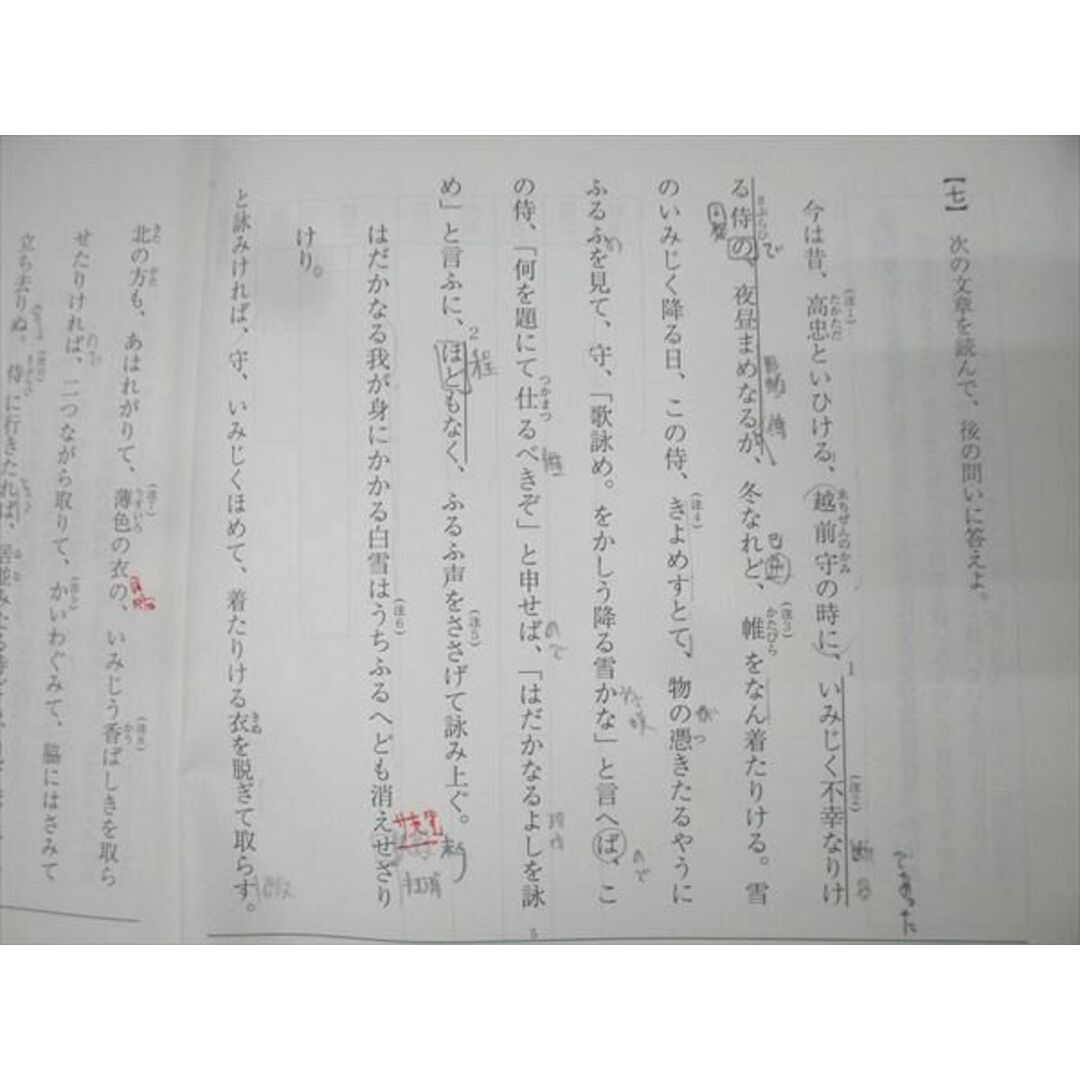 【七】 次の文章を読んで、後の問いに答えよ。
今は昔、高忠といひける、越前守の時に、いみじく不幸なりけ
る侍の、夜昼まめなるが、冬なれど、帷をなん着たりける。雪
のいみじく降る日、この侍、きよめすとて、物の憑きたるやうに
ふるふを見て、守、「歌詠め。をかしう降る雪かな」と言へば、こ
の侍、「何を題にて仕るべきぞ」と申せば、「はだかなるよしを詠
め」と言ふに、ほどもなく、ふるふ声をささげて詠み上ぐ。
はだかなる我が身にかかる白雪はうちふるへども消えせざり
けり。
と詠みければ、守、いみじくほめて、着たりける衣を脱ぎて取らす。
北の方も、あはれがりて、薄色の衣の、いみじう香ばしきを取ら
せたりければ、二つながら取りて、かいわぐみて、脇にはさみて
立ち去りぬ。侍に行きたれば、居並みたる
5